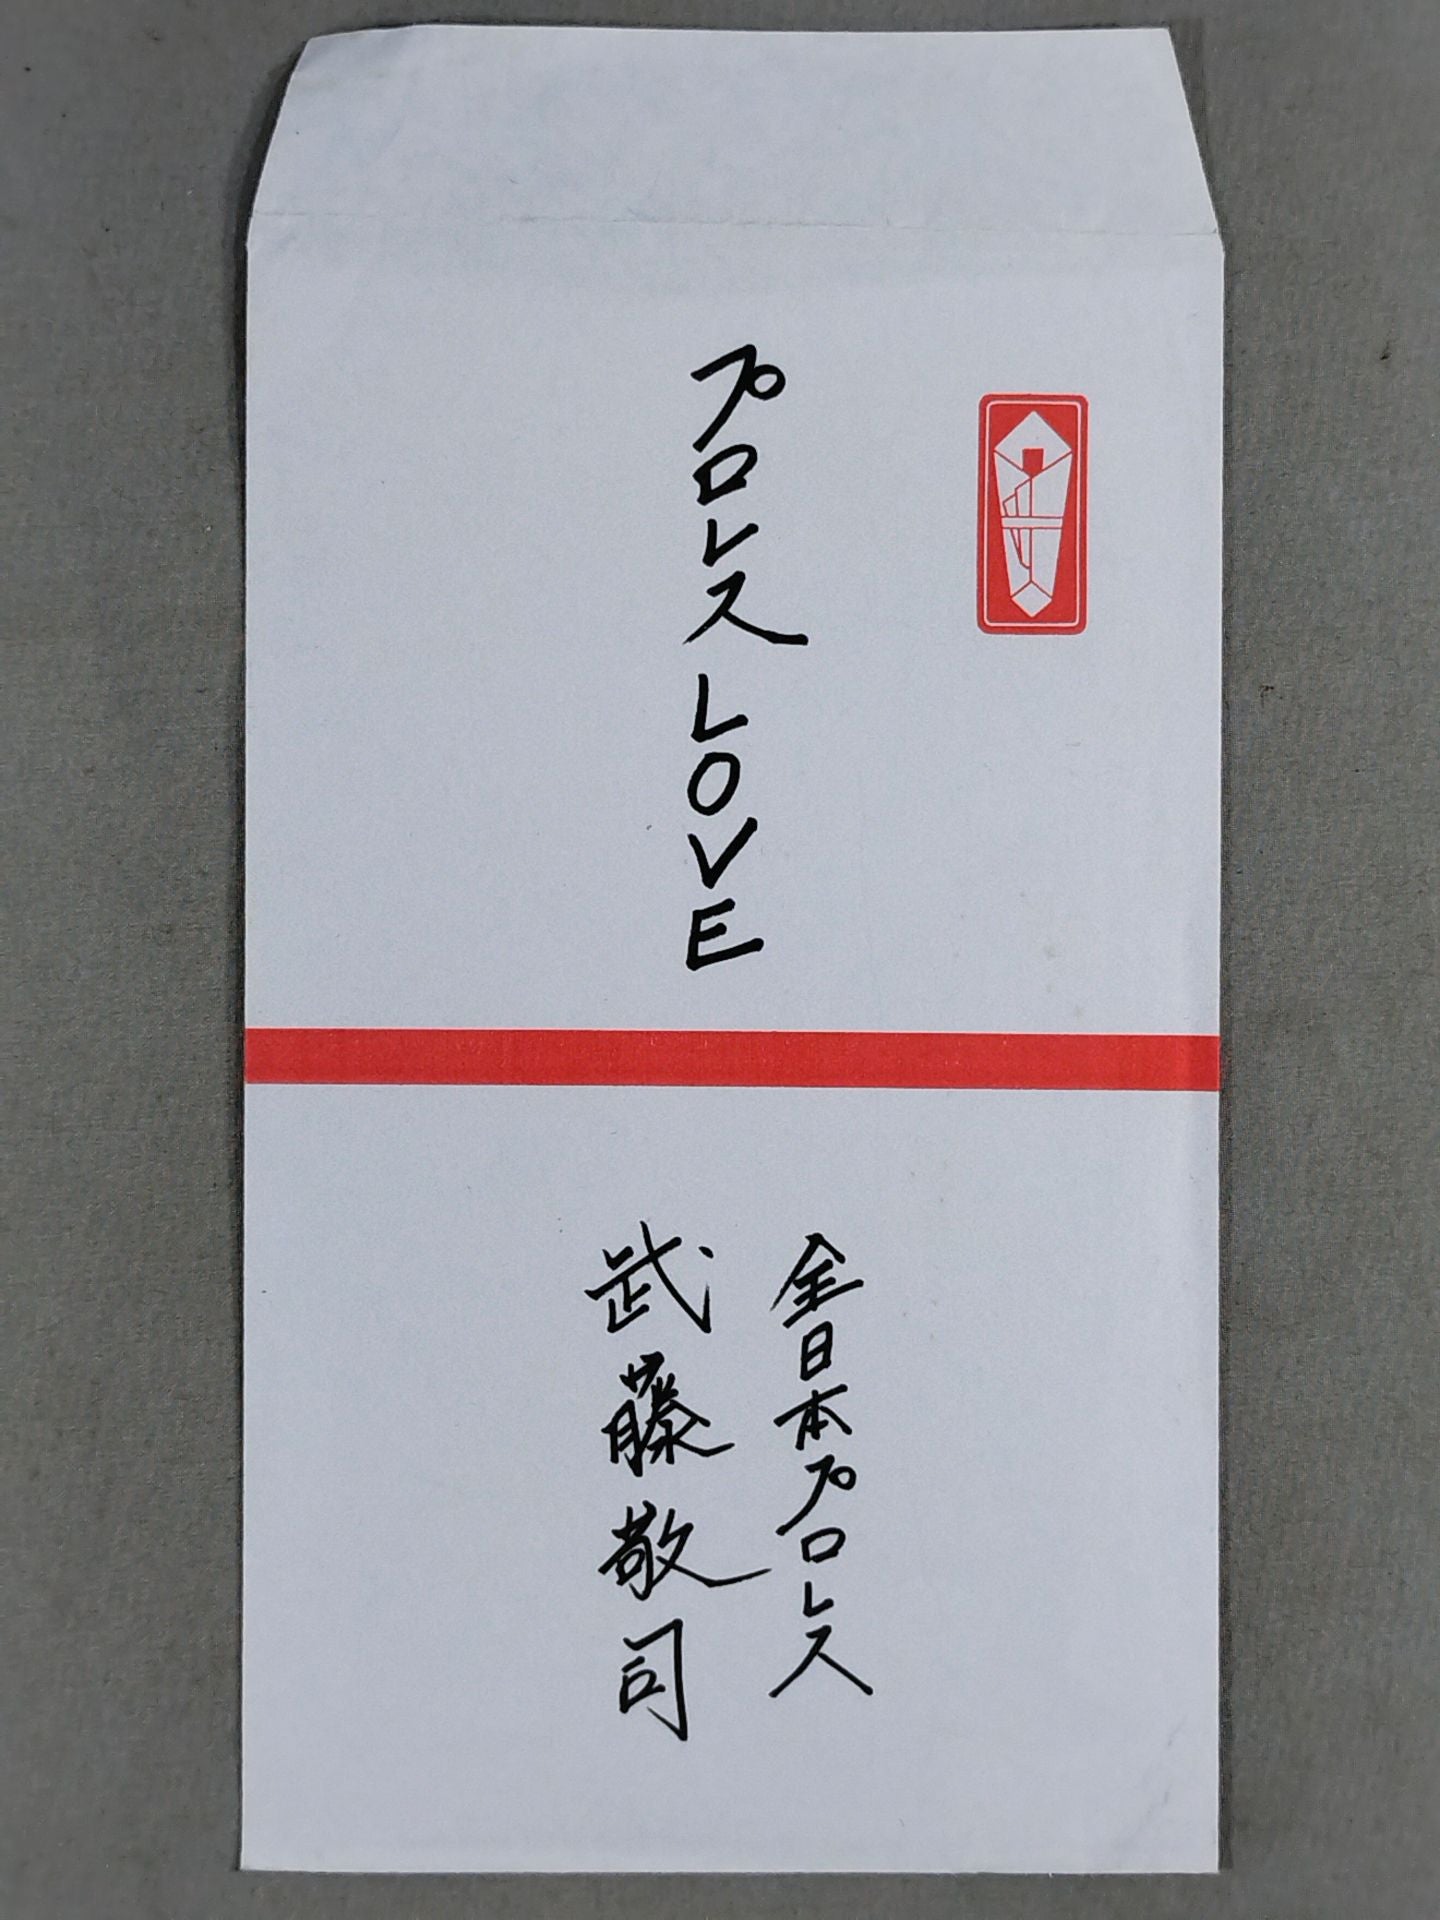 プロレスLOVE
全日本プロレス
武藤敬司